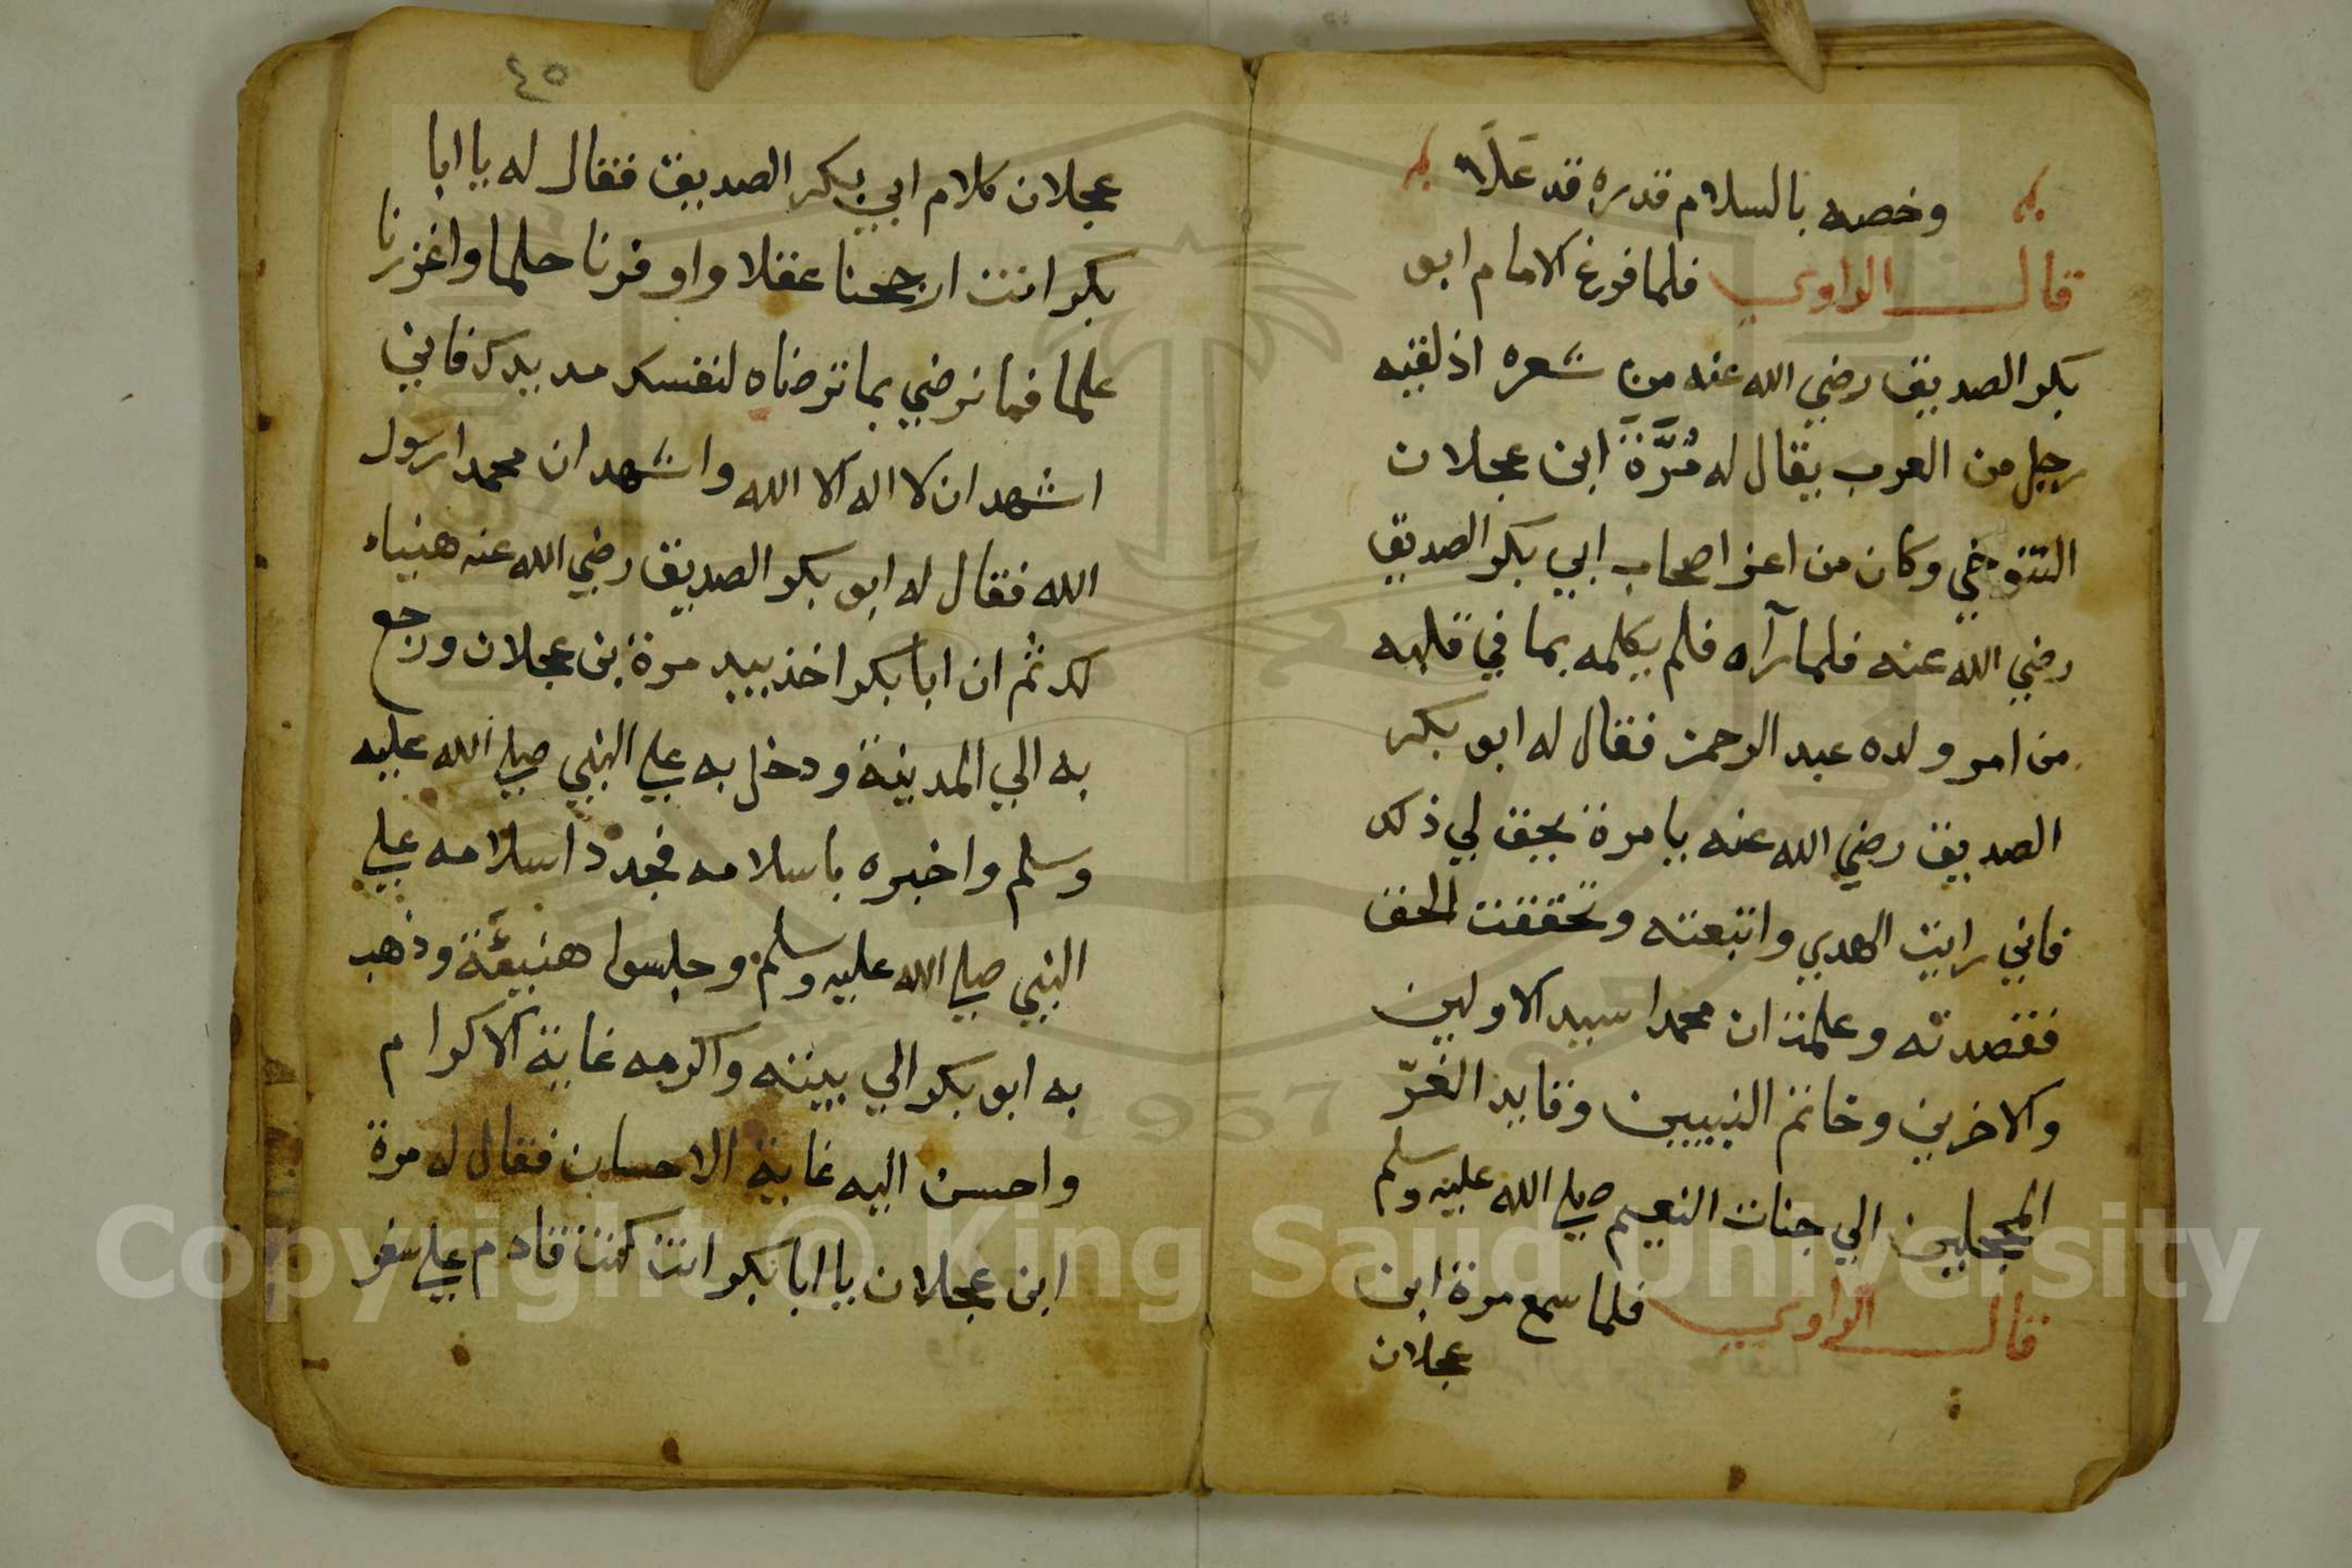 وخصه بالسلام قدره قد علا
قال الراوي فلما فرغ الامام ابو
بكر الصديق رضي الله عنه من شعره اذ لقيه
رجل من العرب يقال له مُرَّةَ ابن عجلان
التنوخي وكان من اعز اصحاب ابي بكر الصديق
رضي الله عنه فلما رآه فلم يكلمه بما في قلبه
من امر ولده عبد الرحمن فقال له ابو بكر
الصديق رضي الله عنه يا مرة يحق لي ذلك
فاني رايت الهدي واتبعته وتحققت الحق
فقصدته وعلمت ان محمدا سيد الاولين
والاخرين وخاتم النبيين وقايد الغرّ
المحجلين الي جنات النعيم صلي الله عليه وسلم
قال الراوي فلما سمع مرة ابن
عجلان
٤٥
عجلان كلام ابي بكر الصديق فقال له يا ابا
بكر انت ارجحنا عقلا واوفرنا حلما واغزرنا
علما فما نرضي بما ترضاه لنفسك مد يدك فاني
اشهد ان لا اله الا الله واشهد ان محمدا رسول
الله فقال له ابو بكر الصديق رضي الله عنه هنياء
لك ثم ان ابا بكر اخذ بيد مرة بن عجلان ورجع
به الي المدينة ودخل به علي النبي صلي الله عليه
وسلم واخبره باسلامه فجدد اسلامه علي
النبي صلي الله عليه وسلم وجلسوا هنيئة وذهب
به ابو بكر الي بيته واكرمه غاية الاكرام
واحسن اليه غاية الاحسان فقال له مرة
ابن عجلان يا ابا بكر انت كنت قادم علي سفر
Copyright © King Saud University
1957